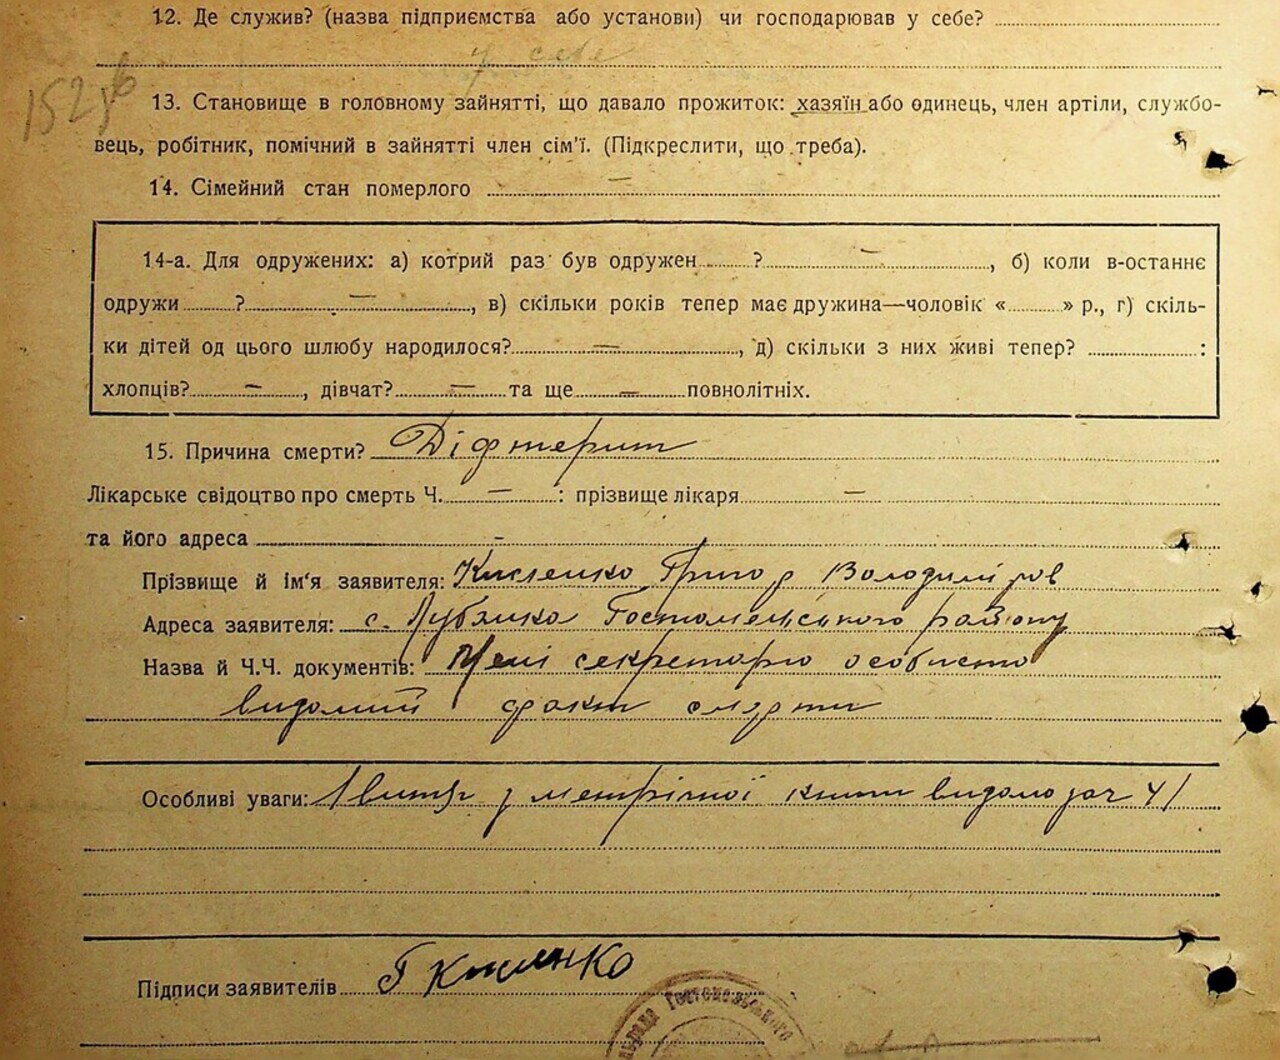 12. Де служив? (назва підприємства або установи) чи господарював у себе?
у себе
13. Становище в головному зайнятті, що давало прожиток: хазяїн або одинець, член артіли, службо-
вець, робітник, помічний в зайнятті член сім'ї. (Підкреслити, що треба).
14. Сімейний стан померлого —
14-а. Для одружених: а) котрий раз був одружен ? —, б) коли в-останнє
одружи ? —, в) скільки років тепер має дружина—чоловік « » р., г) скіль-
ки дітей од цього шлюбу народилося? —, д) скільки з них живі тепер? :
хлопців? —, дівчат? — та ще — повнолітніх.
15. Причина смерти? Діфтерит
Лікарське свідоцтво про смерть Ч. — : прізвище лікаря —
та його адреса -
Прізвище й ім'я заявителя: Кисленко Григор Володиміров
Адреса заявителя: с. Лубянка Гостомельського району
Назва й Ч.Ч. документів: Мені секретарю особисто
видомий факт смерти
Особливі уваги: /витяг з метрічної книги видано за ч 4/
Підписи заявителів Г Кисленко
Гостомельського